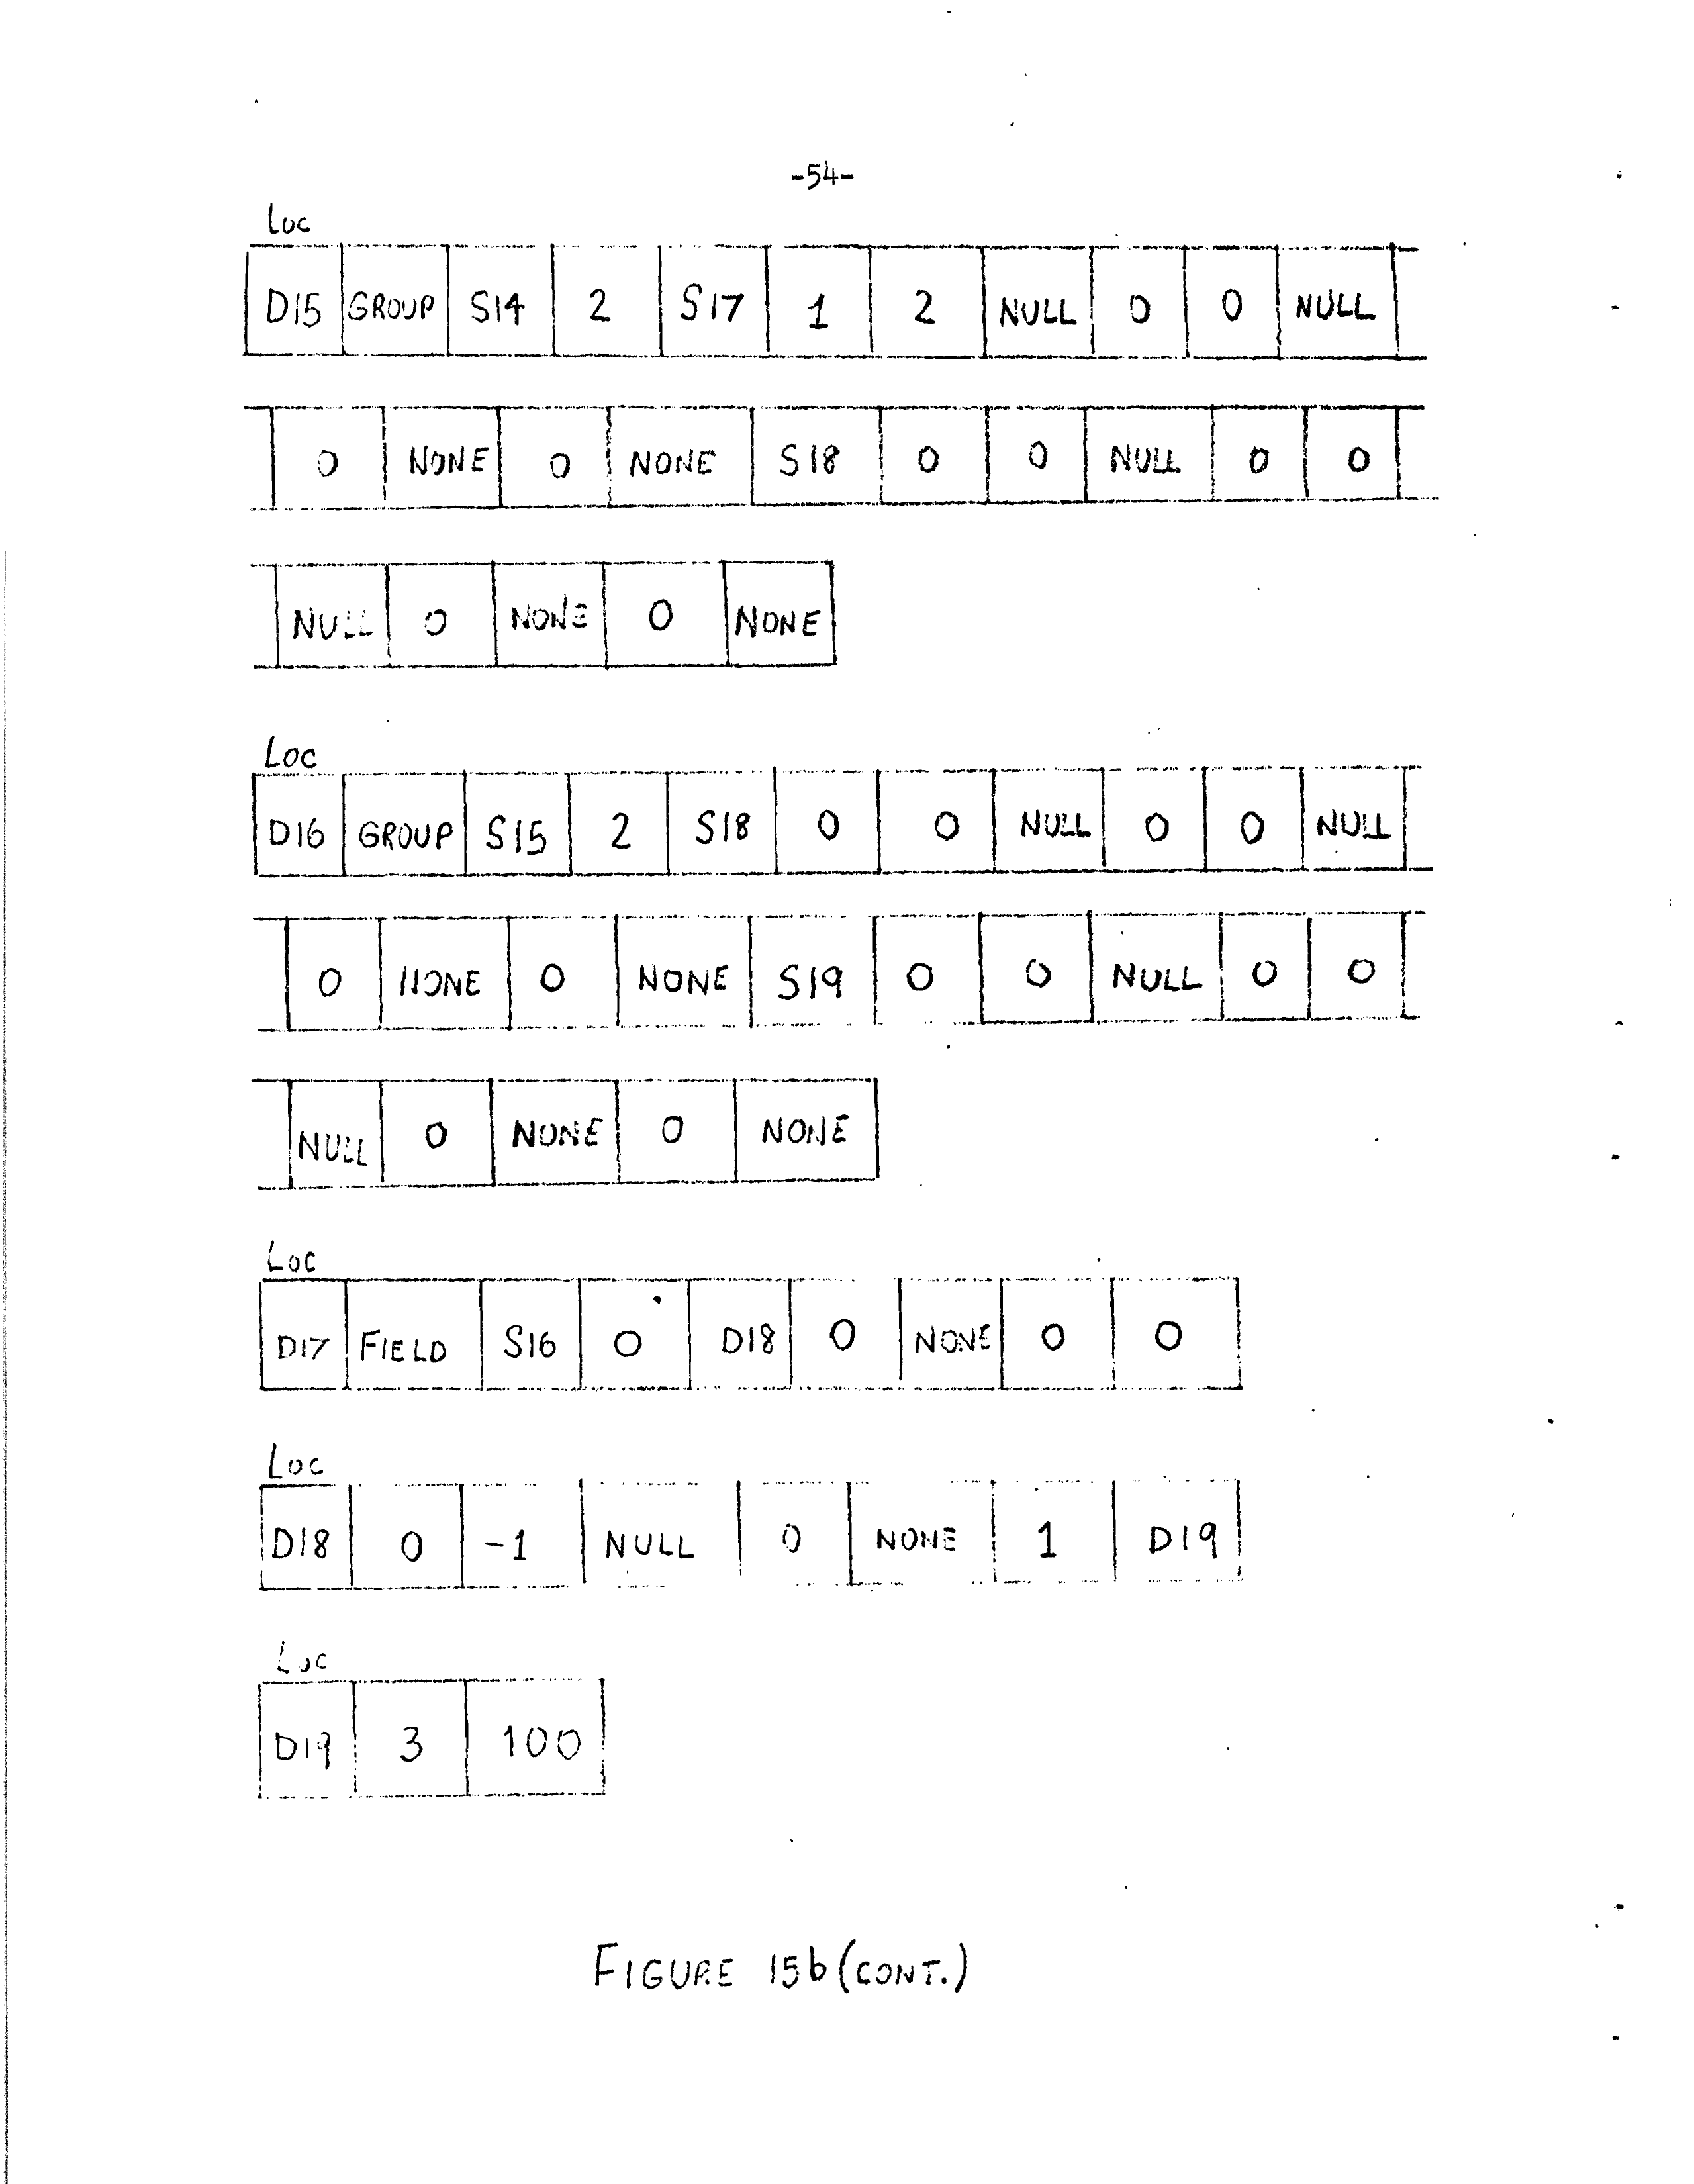 -54-
Loc
D15 GROUP S14 2 S17 1 2 NULL 0 0 NULL
0 NONE 0 NONE S18 0 0 NULL 0 0
NULL 0 NONE 0 NONE
Loc
D16 GROUP S15 2 S18 0 0 NULL 0 0 NULL
0 NONE 0 NONE S19 0 0 NULL 0 0
NULL 0 NONE 0 NONE
Loc
D17 FIELD S16 0 D18 0 NONE 0 0
Loc
D18 0 -1 NULL 0 NONE 1 D19
Loc
D19 3 100
FIGURE 15b (CONT.)